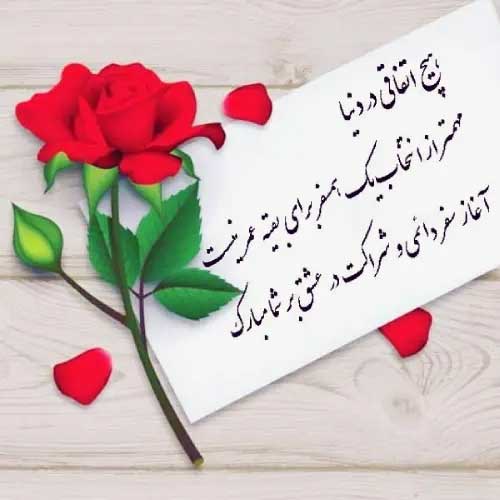 هیچ اتفاقی در دنیا
مهمتر از انتخاب یک همسفر برای بقیه عمر نیست
آغاز سفر دائمی و شراکت در عشق بر شما مبارک